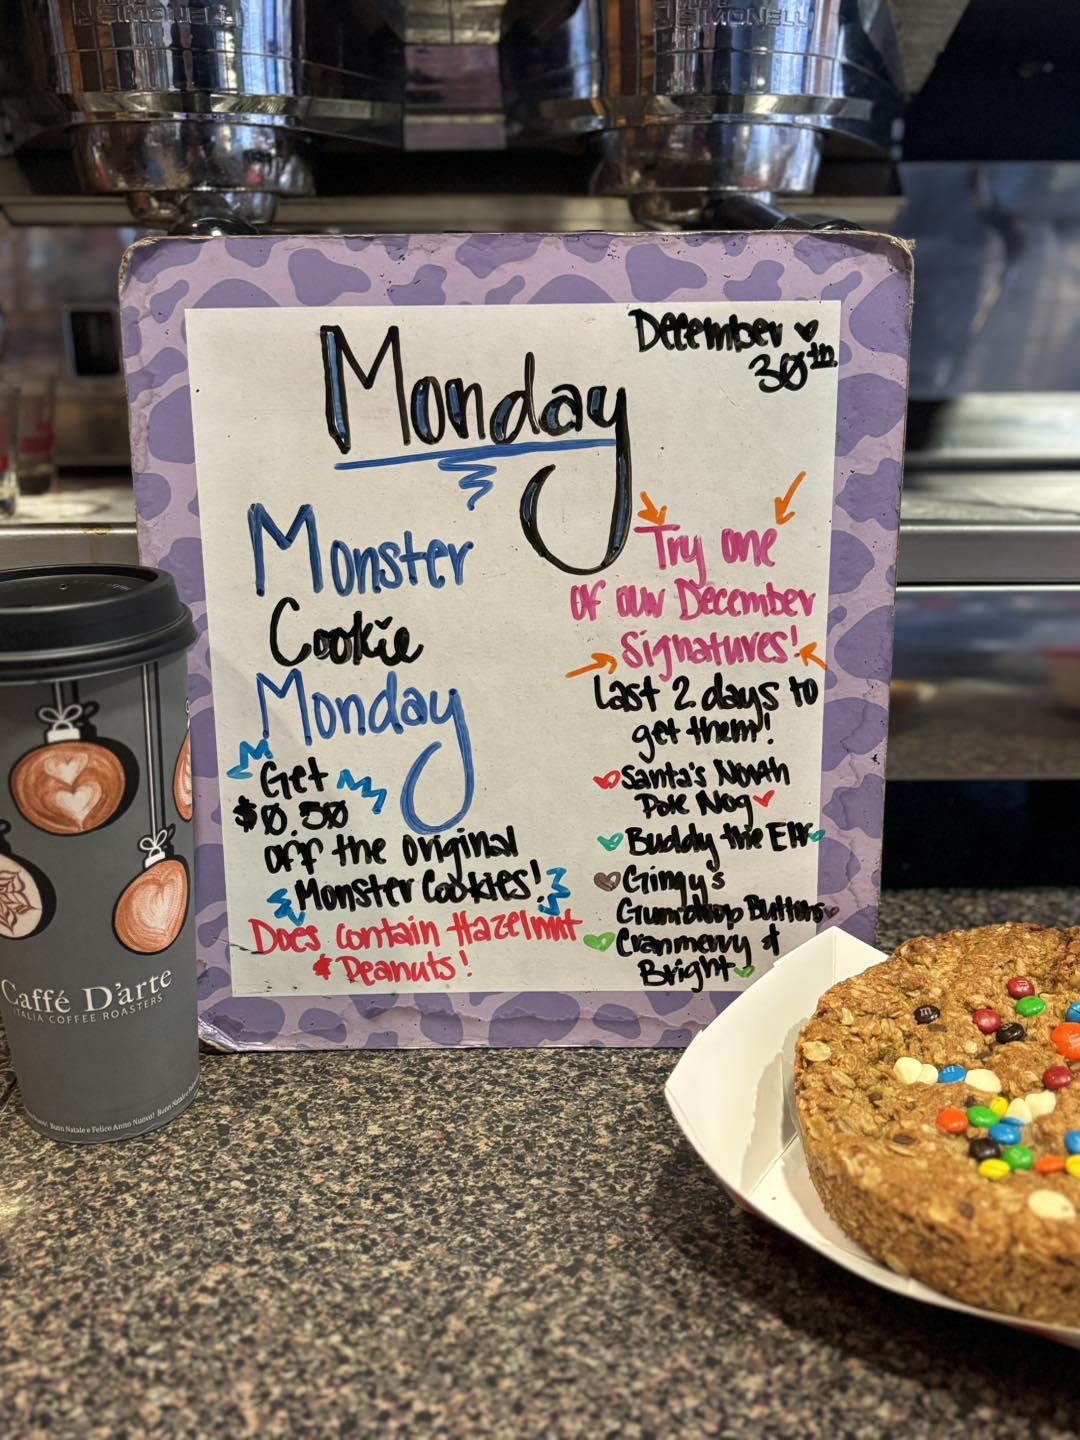 SIMONELLI
Monday
December
30th
Monster
Cookie
Monday
Get
$0.50
off the original
Monster Cookies!
Does contain Hazelnut
& Peanuts!
Try one
of our December
signatures!
Last 2 days to
get them!
Santa's North
Pole Nog
Buddy the Elf
Gingy's
Gumdrop Buttons
Cranmerry &
Bright
Caffé D'arte
ITALIA COFFEE ROASTERS
Buon Natale e Felice Anno Nuovo! Buon Natale